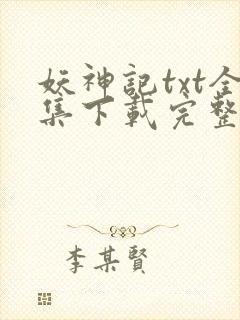 妖神記txt全
集下載完整
李某賢